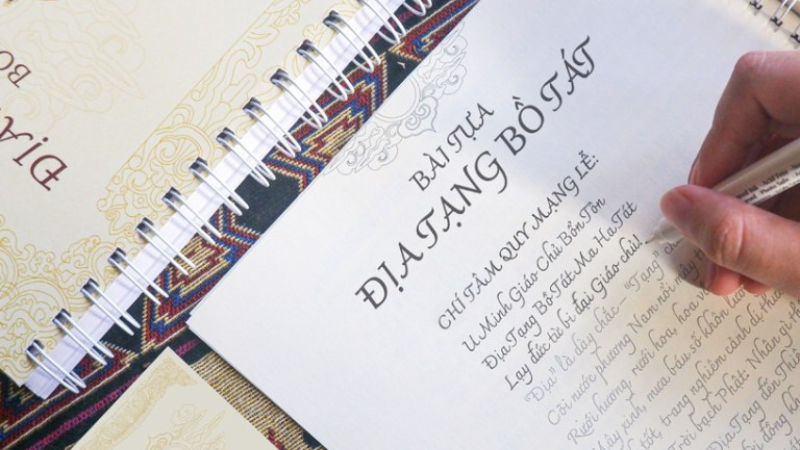 BỒ
ĐỊA
BÀI TỰA
ĐỊA TẠNG BỒ TÁT
CHÍ TÂM QUY MẠNG LỄ:
U Minh Giáo Chủ Bổn Tôn
Địa Tạng Bồ Tát Ma Ha Tát
Lạy đức từ bi đại Giáo chủ!
"Địa" là dày chắc – "Tạng"
Cõi nước phương Nam nổi mây
Rưới hương, rưới hoa, hoa
Mây xinh, mưa báu số khôn
tốt, trang nghiêm cảnh dị
Trời bạch Phật: Nhân gì
Địa Tạng đến Thiên
đồng